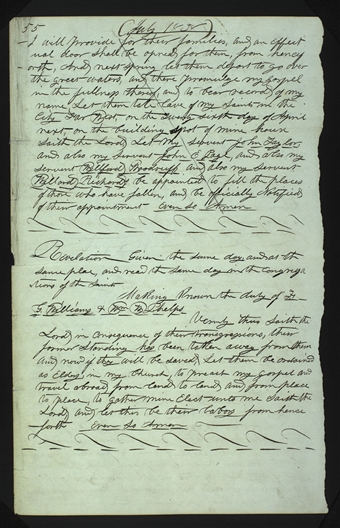 55 (July 1838)
I will provide for their families, and an effect
ual door shall be opned for them, from hence
forth, And next spring let them depart to go over
the great waters, and there promulge my gospel
in the fullness thereof, and to bear record of my
name. Let them take leave of my Saints in the
City Far West, on the Twenty sixth day of April
next, on the building spot of mine house
Saith the Lord, Let my servent John Taylor
and also my servent John E. Page, and also my
servent Willford Woodruff and also my servent
Willard Richards be appointed to fill the places
of those who have fallen, and be officially Notified
of their appointment Even So Amen
Revelation Given the same day and at the
same place, and read the same day in the congrega
tions of the Saints
Making Known the duty of F.
G. Williams & Wm W. Phelps
Verrily thus Saith the
Lord in consequence of their transgressions, their
former Standing has been taken away from them
and now if they will be saved, Let them be ordained
as Elders, in my Church, to preach my gospel and
travel abroad from land to land and from place
to place, to gather mine Elect unto me Saith the
Lord, and let this be their labors from hence
forth Even So Amen